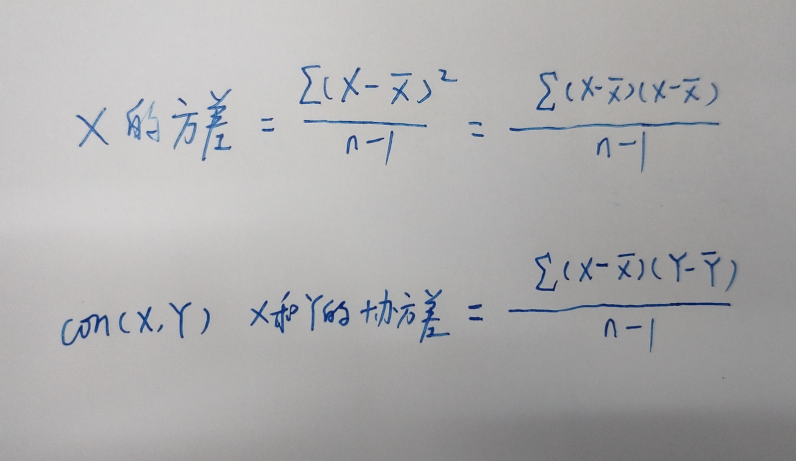 X 的方差 = ∑(X-X̄)² / n-1 = ∑(X-X̄)(X-X̄) / n-1
con(X,Y) X和Y的协方差 = ∑(X-X̄)(Y-Ȳ) / n-1